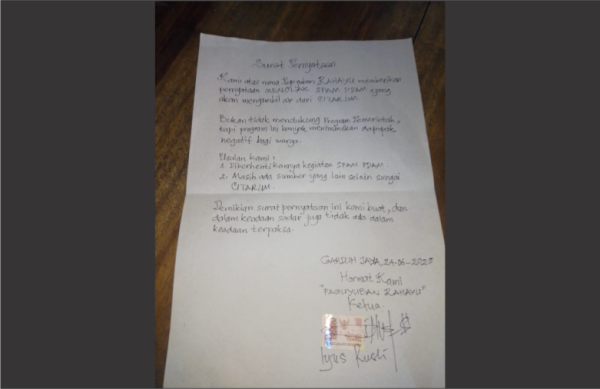 Surat Pernyataan
Kami atas nama Paguyuban RAHAYU memberikan
pernyataan MENOLAK SPAM PDAM yang
akan mengambil air dari CITARUM.
Bukan tidak mendukung Program Pemerintah,
tapi program ini banyak menimbulkan dampak
negatif bagi warga.
Usulan kami :
1. Diberhentikannya kegiatan SPAM PDAM.
2. Masih ada sumber yang lain selain sungai
CITARUM.
Demikian surat pernyataan ini kami buat, dan
dalam keadaan sadar juga tidak ada dalam
keadaan terpaksa.
JAYA, 24-06-2023
Hormat Kami
"PAGUYUBAN RAHAYU"
Ketua
Kusdi